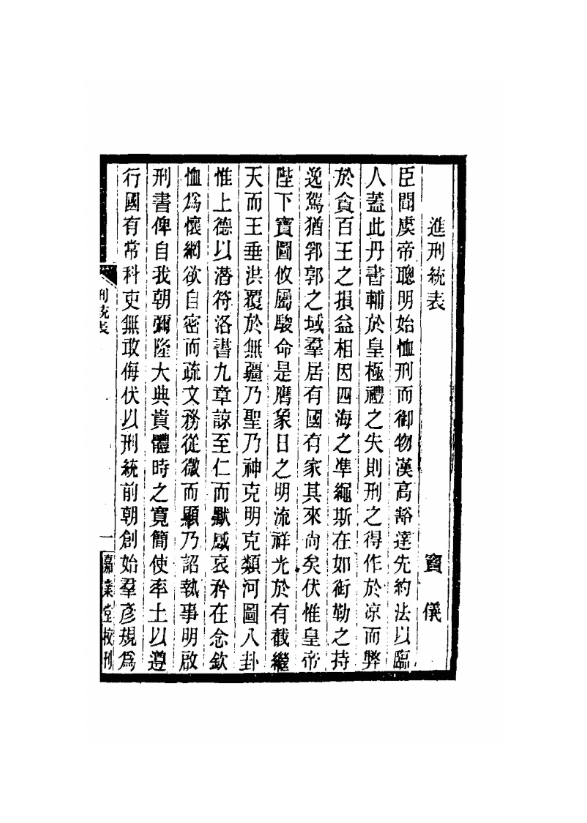 進刑統表
竇儀
臣聞虞帝聰明始恤刑而御物漢高豁達先約法以臨
人蓋此丹書輔於皇極禮之失則刑之得作於凉而弊
於貪百王之損益相因四海之準繩斯在如銜勒之持
逸駕猶郛郭之域羣居有國有家其來尚矣伏惟皇帝
陛下寶圖攸屬駿命是膺象日之明流祥光於有截繼
天而王垂洪覆於無疆乃聖乃神克明克類河圖八卦
惟上德以潛符洛書九章諒至仁而默感哀矜在念欽
恤爲懷網欲自密而疏文務從微而顯乃詔執事明啟
刑書俾自我朝彌隆大典貴體時之寬簡使率土以遵
行國有常科吏無敢侮伏以刑統前朝創始羣彥規爲
刑統表
一
嘉業堂校刊